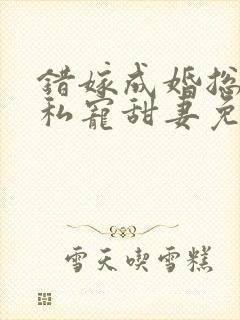 错嫁成婚总
私宠甜妻免
雪天喫雪糕